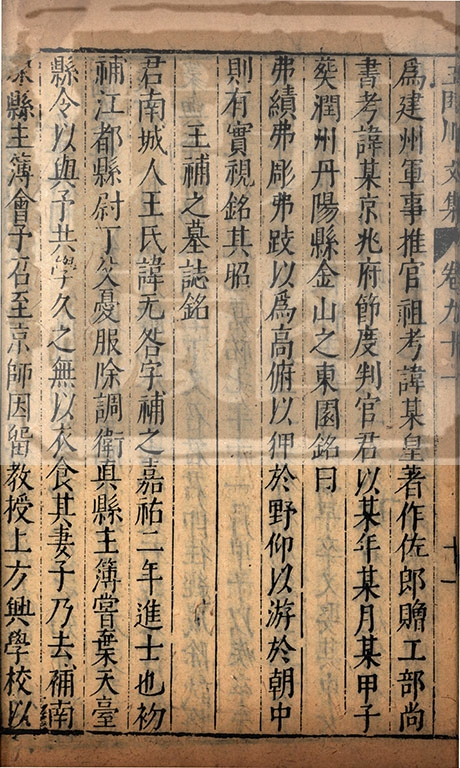 川文集 卷九十一
爲建州軍事推官祖考諱某皇著作佐郎贈工部尚
書考諱某京兆府節度判官君以某年某月某甲子
葬潤州丹陽縣金山之東園銘曰
弗績弗彫弗跂以爲高俯以狎於野仰以游於朝中
則有實視銘其昭
王補之墓誌銘
君南城人王氏諱无咎字補之嘉祐二年進士也初
補江都縣尉丁父憂服除調衛眞縣主簿嘗棄天臺
縣令以與予共學久之無以衣食其妻子乃去補南
康縣主簿會予召至京師因留教授上方興學校以